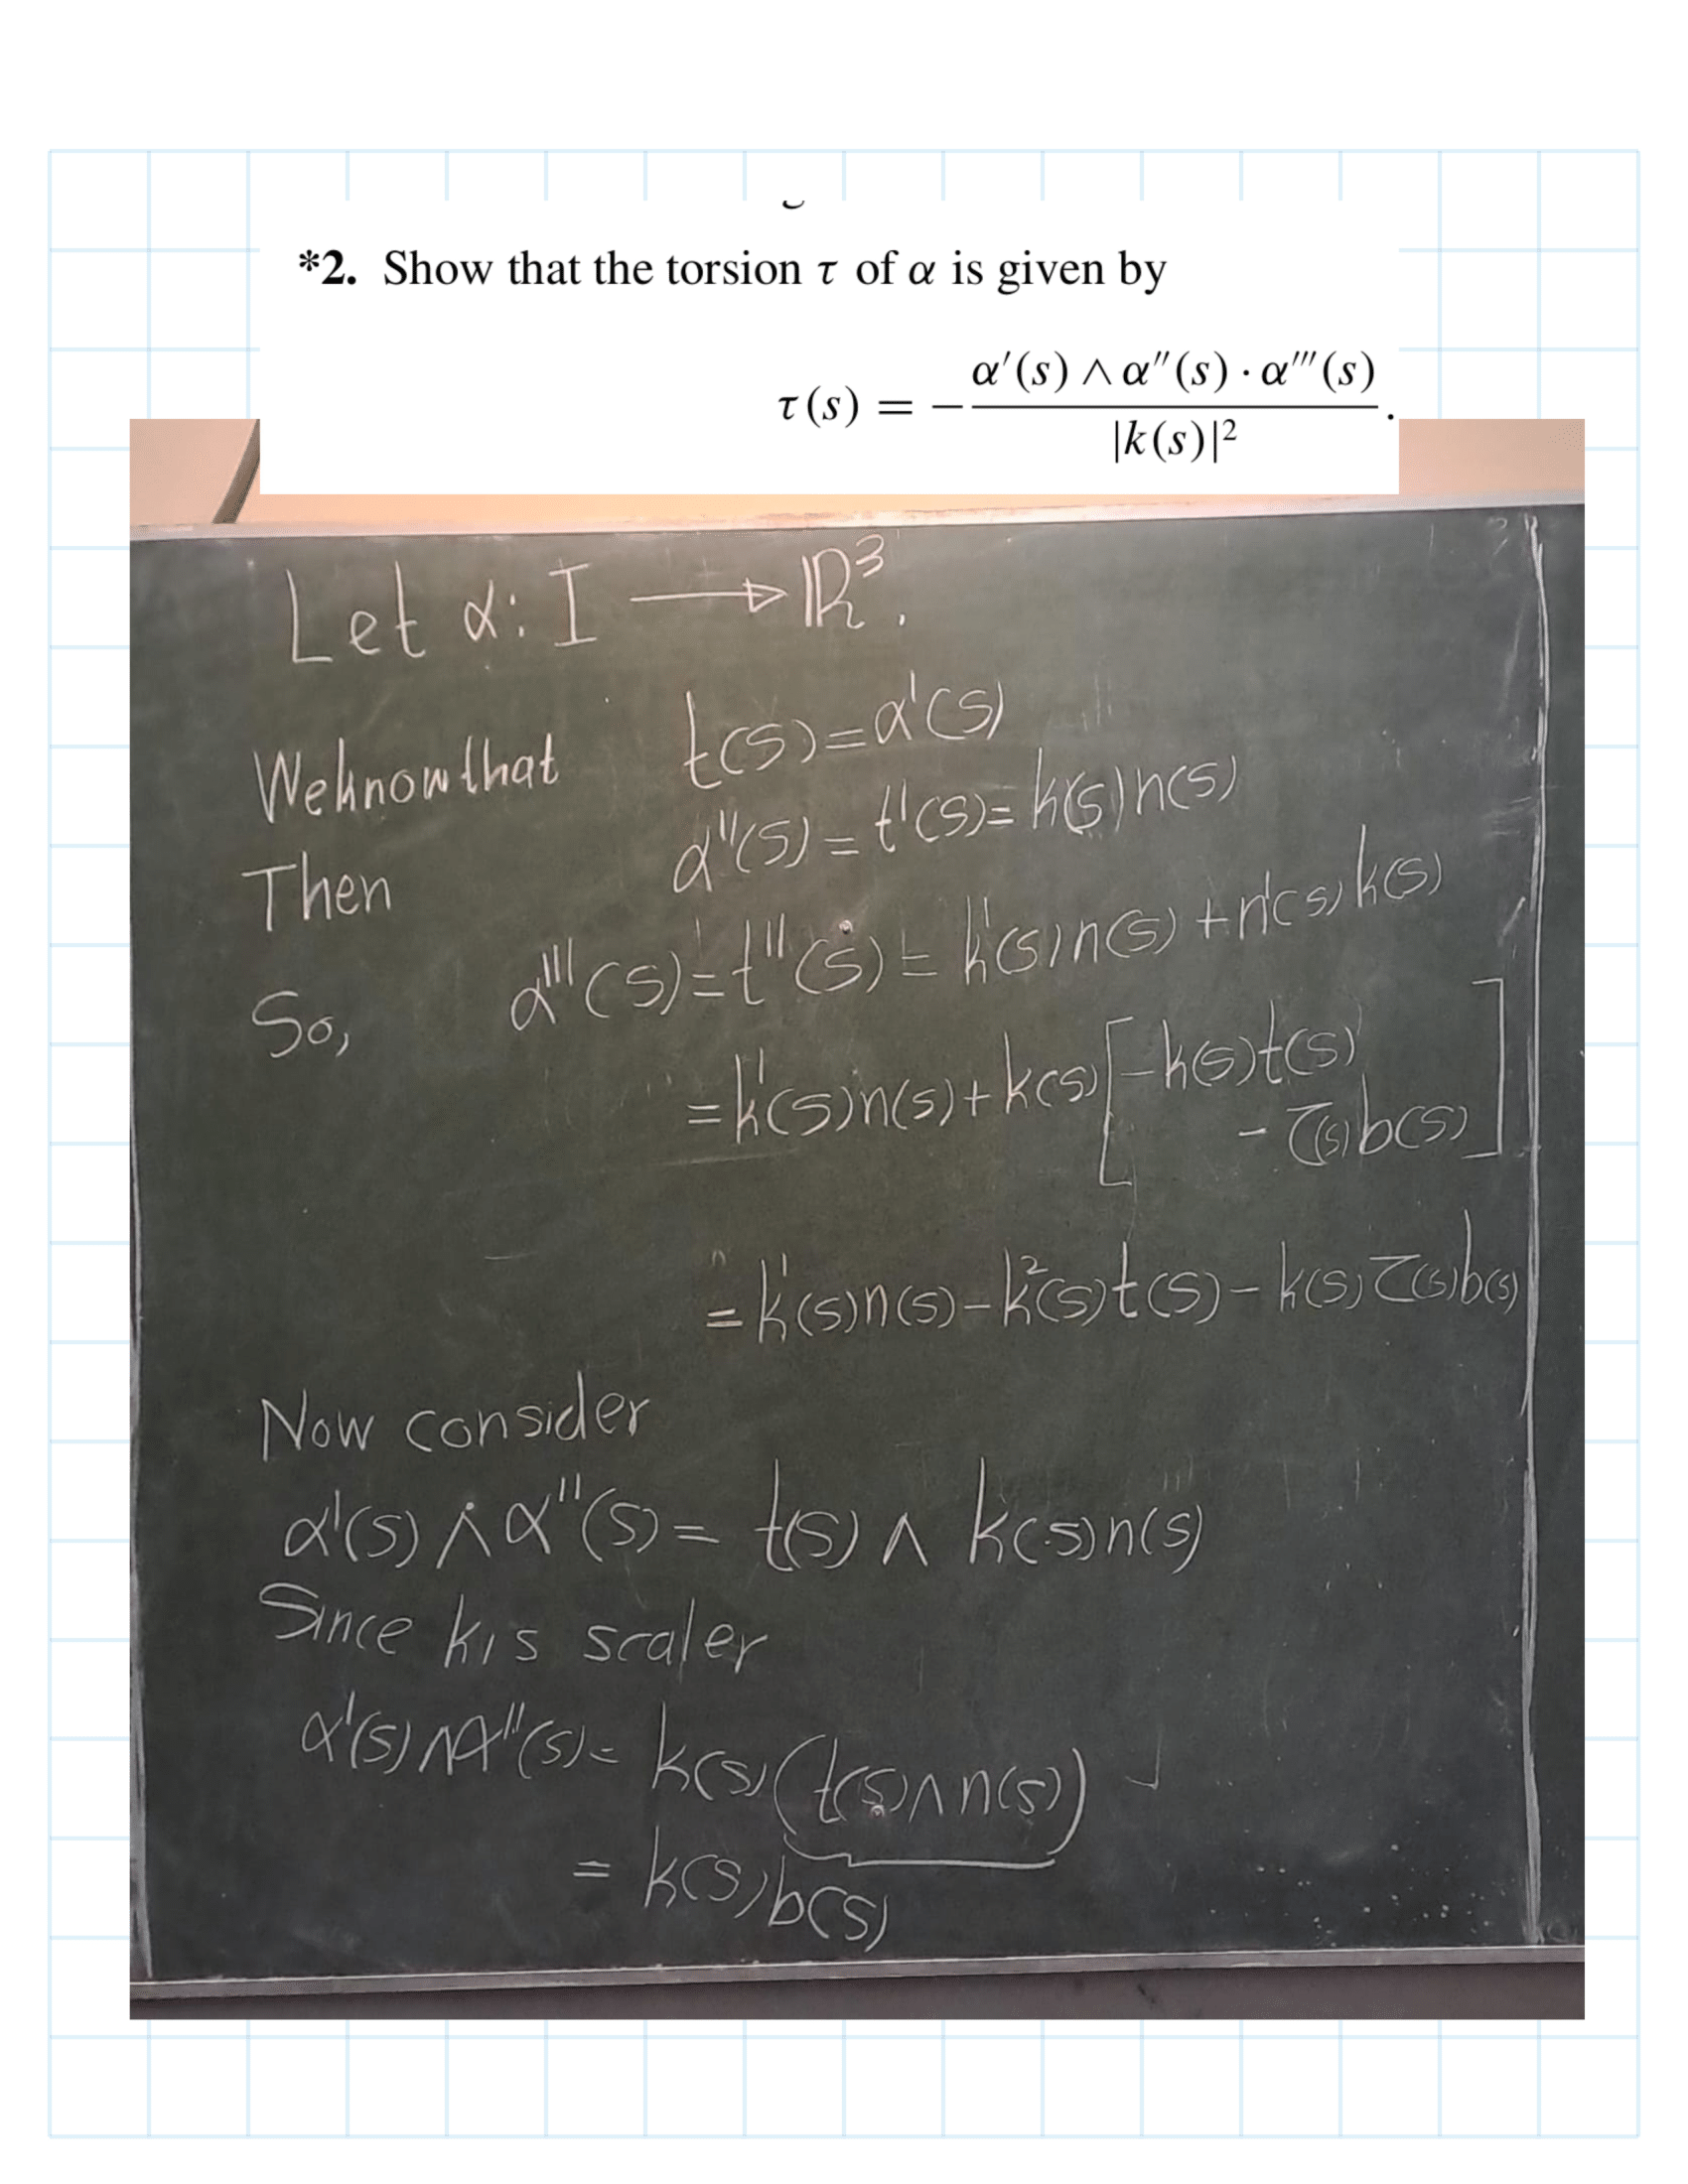 *2. Show that the torsion τ of α is given by
τ(s) = − α′(s) ∧ α″(s) · α‴(s) / |k(s)|².
Let α: I → ℝ³.
We know that t(s) = α'(s)
α''(s) = t'(s) = k(s)n(s)
Then
α'''(s) = t''(s) = k'(s)n(s) + n'(s)k(s)
So,
= k'(s)n(s) + k(s)[-k(s)t(s)
- τ(s)b(s)]
= k'(s)n(s) - k²(s)t(s) - k(s)τ(s)b(s)
Now consider
α'(s) ∧ α''(s) = t(s) ∧ k(s)n(s)
Since k is scaler
α'(s) ∧ α''(s) = k(s)(t(s) ∧ n(s))
= k(s)b(s)